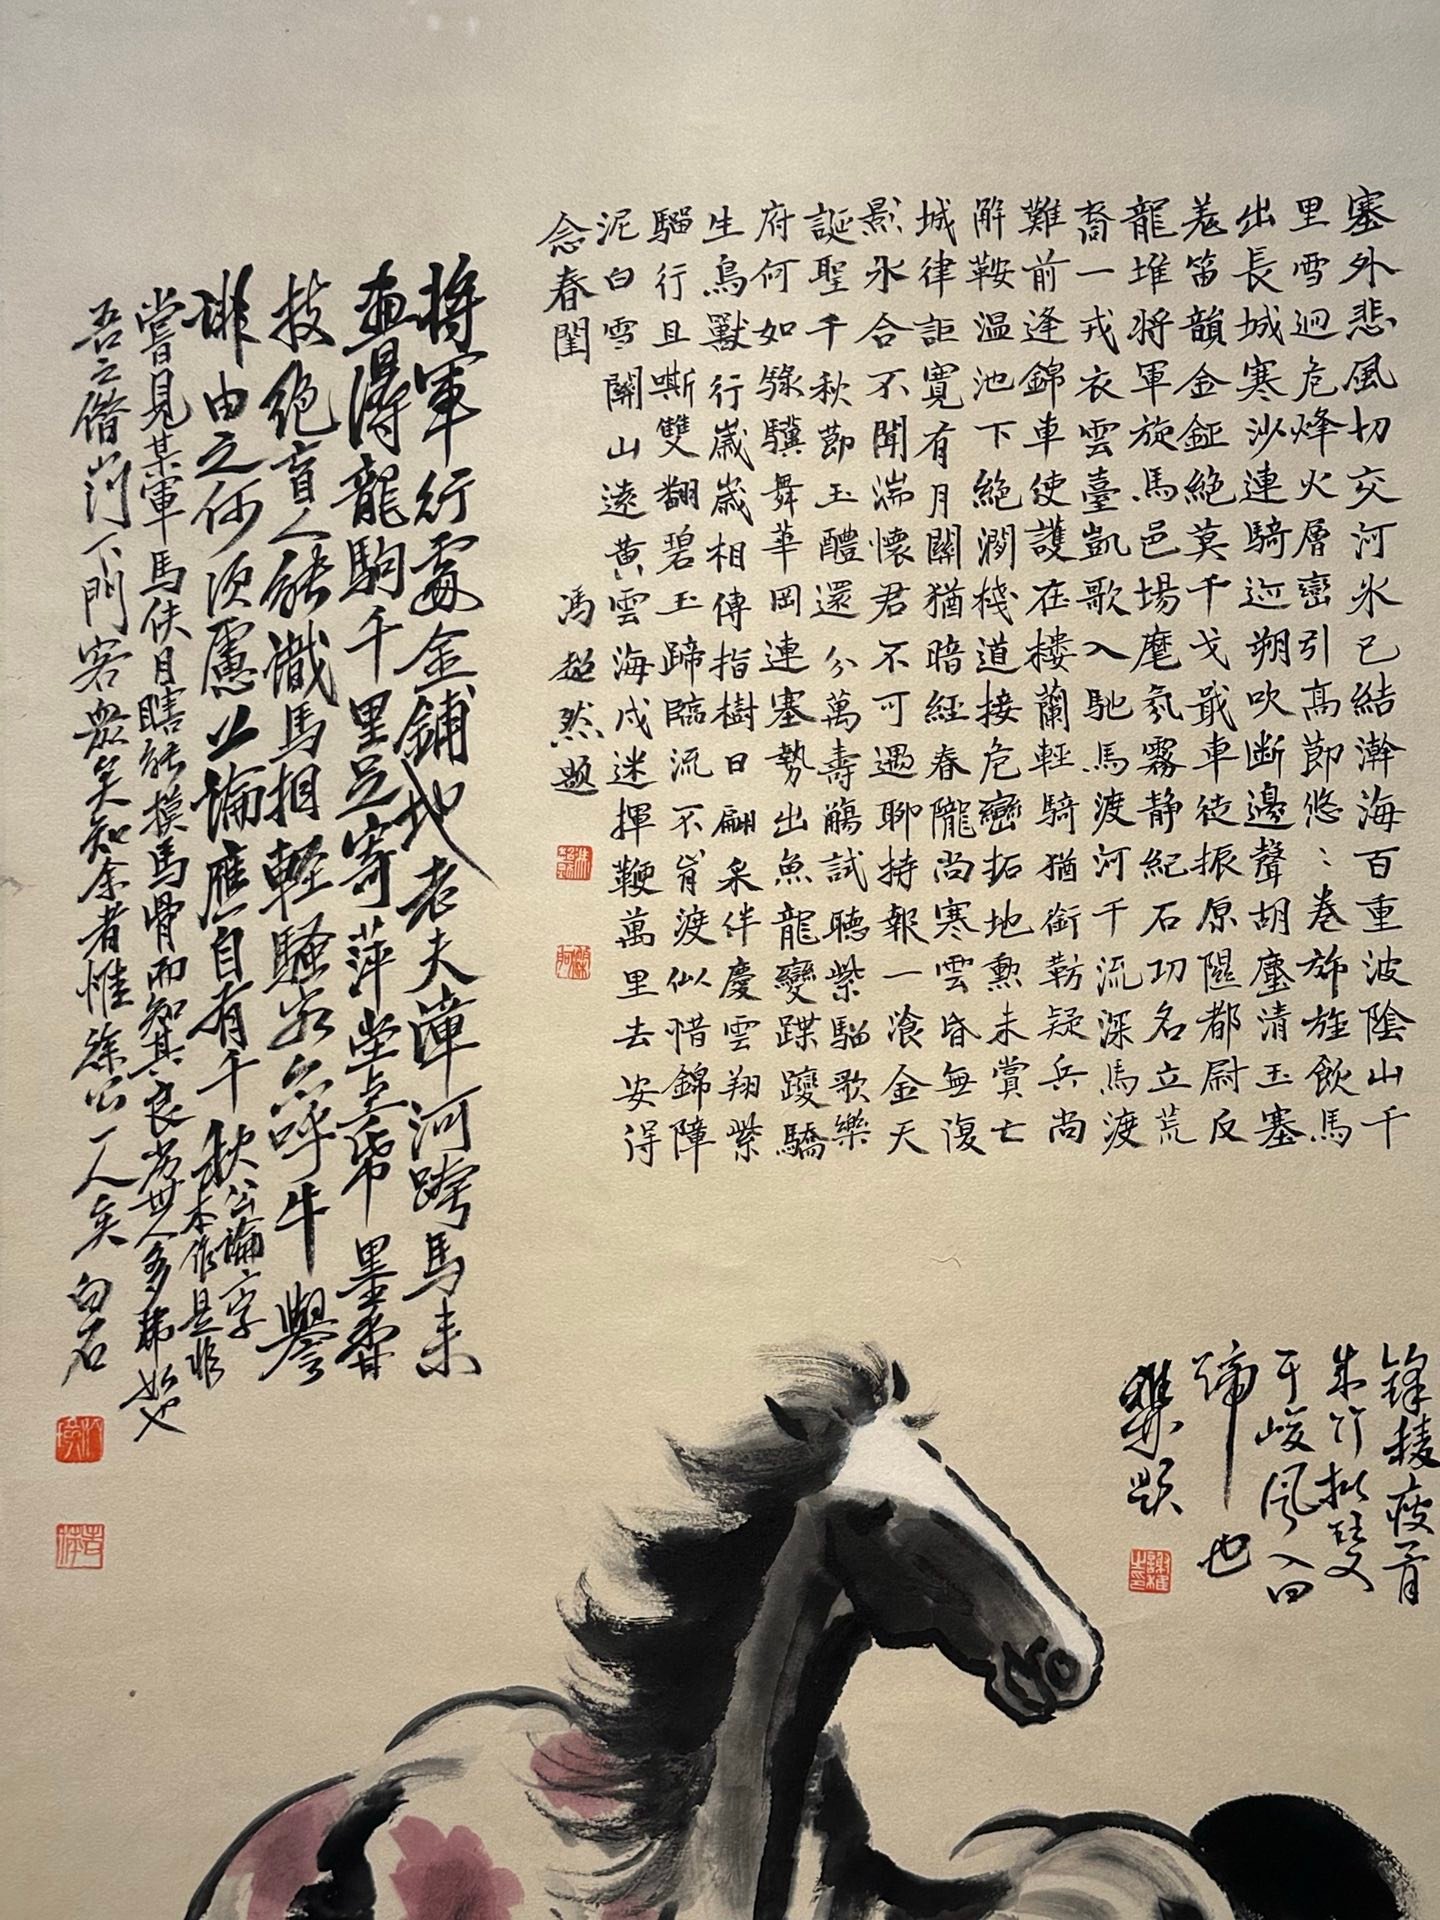 塞外悲風切交河冰已結瀚海百重波陰山千
里雪迥危烽火層巒引高節悠:卷旆旌飲馬
出長城寒沙連騎迹朔吹断邊聲胡塵清玉塞
羗笛韻金鉦絕莫干戈戢車徒振原隰都尉反
龍堆将軍旋馬邑場麾氛霧静紀石功名立荒
裔一戎衣雲臺凱歌入馳馬渡河千流深馬渡
難前逢錦車使護在樓蘭輕騎猶銜勒疑兵尚
解鞍温池下絕澗棧道接危巒拓地勲未賞亡
城律詎寬有月關猶暗經春隴尚寒雲昏無復
影冰合不聞湍懷君不可遇聊持報一飡金天
誕聖千秋節玉醴還分萬壽觴試聽紫騮歌樂
府何如騄驥舞華岡連塞勢出魚龍變蹀躞驕
生鳥獸行歲歲相傳指樹日翩采伴慶雲翔紫
騮行且嘶雙翻碧玉蹄臨流不肯渡似惜錦障
泥白雪關山遠黄雲海戍迷揮鞭萬里去安得
念春閨
馮超然題
将軍行處金鋪地老夫漳河跨馬未
畫得龍駒千里足寄萍堂上帋墨香
技絕盲人能識馬相輕騷客六呼牛譽
誹由之何須慮公論應自有千秋
公論二字
本作是非
嘗見某軍馬伕目瞎能摸馬骨而知其良劣世人多
吾之借山门下門客衆矣知余者惟徐公一人矣 白石
鋒棱瘦骨
朱竹批雙
耳峻風入四
蹄也
題